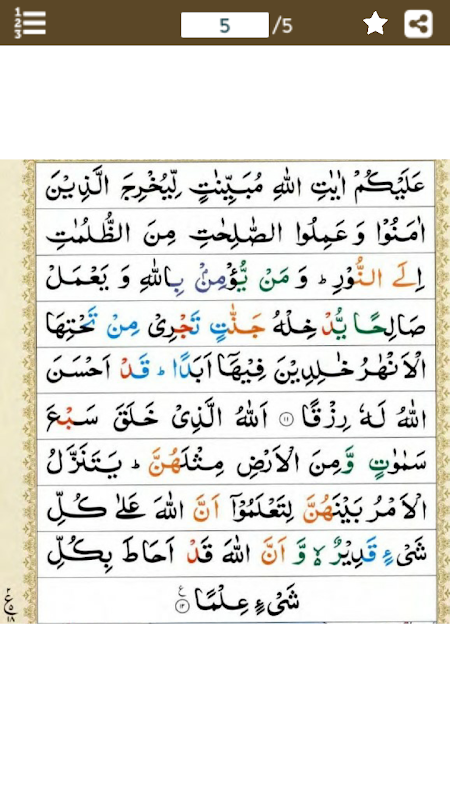 5 /5
عَلَيْكُمْ اٰيٰتِ اللّٰهِ مُبَيِّنٰتٍ لِّيُخْرِجَ الَّذِيْنَ
اٰمَنُوْا وَعَمِلُوا الصّٰلِحٰتِ مِنَ الظُّلُمٰتِ
اِلَى النُّوْرِ ؕ وَمَنْ يُّؤْمِنْۢ بِاللّٰهِ وَ يَعْمَلْ
صَالِحًا يُّدْخِلْهُ جَنّٰتٍ تَجْرِىْ مِنْ تَحْتِهَا
الْاَنْهٰرُ خٰلِدِيْنَ فِيْهَاۤ اَبَدًا ؕ قَدْ اَحْسَنَ
اللّٰهُ لَهٗ رِزْقًا ۝۱۱ اَللّٰهُ الَّذِىْ خَلَقَ سَبْعَ
سَمٰوٰتٍ وَّمِنَ الْاَرْضِ مِثْلَهُنَّ ؕ يَتَنَزَّلُ
الْاَمْرُ بَيْنَهُنَّ لِتَعْلَمُوْۤا اَنَّ اللّٰهَ عَلٰى كُلِّ
شَىْءٍ قَدِيْرٌ ۙ وَّ اَنَّ اللّٰهَ قَدْ اَحَاطَ بِكُلِّ
شَىْءٍ عِلْمًا ۝۱۲